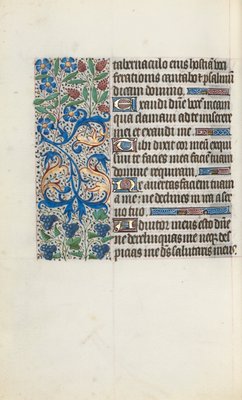 tabernaculo eius hostiā vo
ferationis cantabo ⁊ psalmū
dicam domino.
Exaudi dn̄e vocem meam
qua clamaui ad te misere
mei et exaudi me.
Tibi dixit cor meū exqui
siuit te facies mea faciē tuam
domine requiram.
Ne auertas faciem tuam
a me: ne declines in ira a ser
uo tuo.
Adiutor meus esto dn̄e
ne derelinquas me neqꝫ des
picias me d̄s salutaris meus